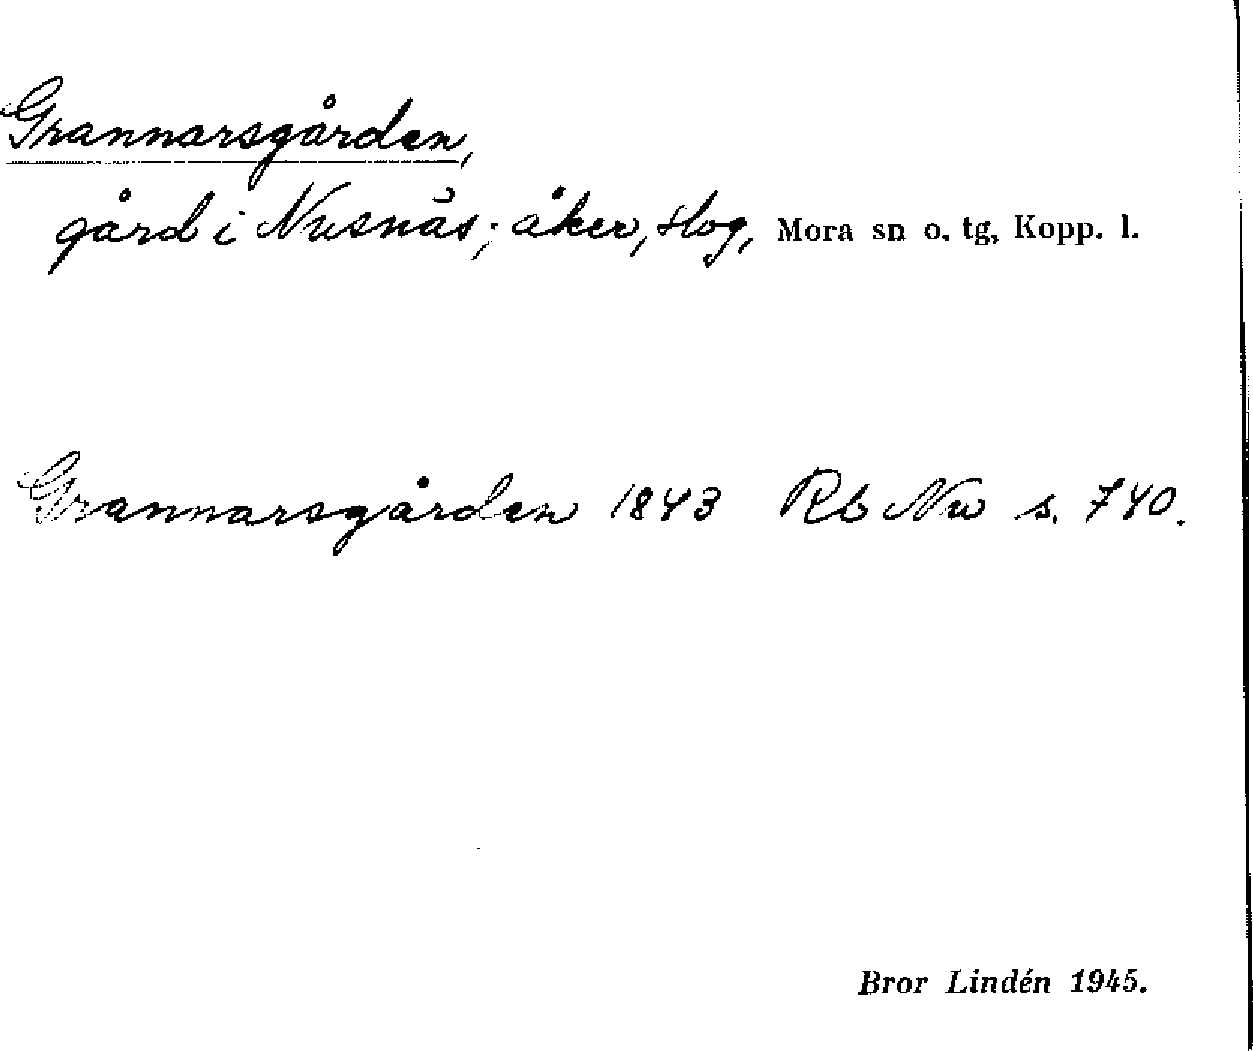 Grannarsgården,
gård i Nusnäs; åker, slog, Mora sn o. tg, Kopp. l.
Grannarsgården 1843 Rb Nu s. 740.
Bror Lindén 1945.